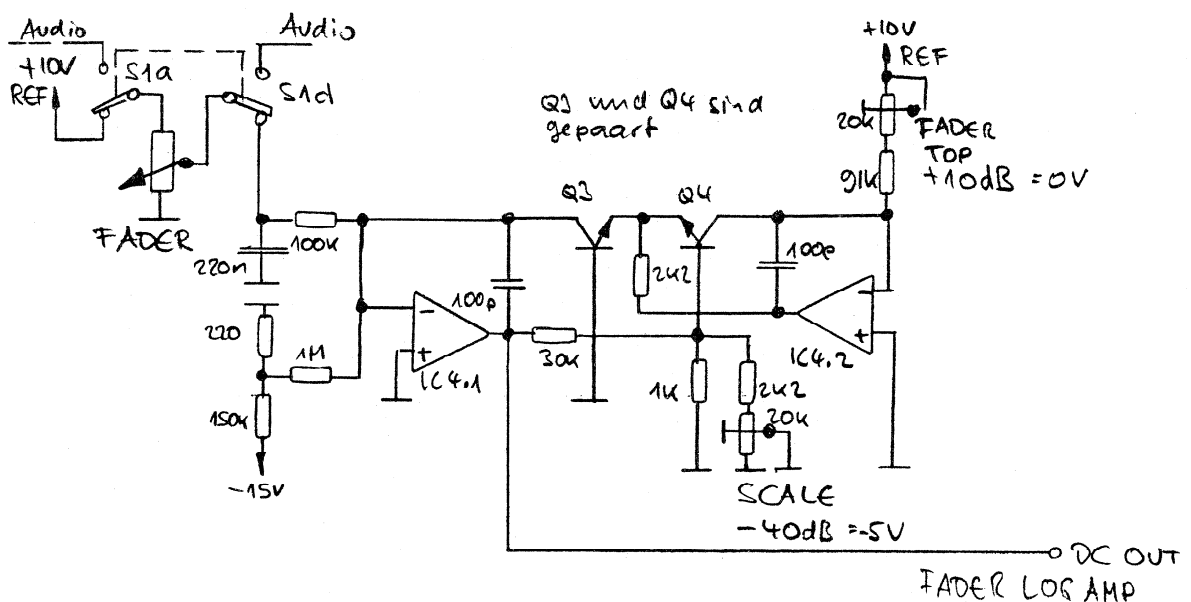 Audio
+10V
REF
S1a
Audio
S1d
Q3 und Q4 sind
gepaart
+10V
REF
20k
FADER
TOP
+10dB = 0V
91k
FADER
100k
220n
220
1M
150k
-15V
100p
-
+
IC4.1
30k
Q3
Q4
2k2
100p
-
+
IC4.2
1k
2k2
20k
SCALE
-40dB =-5V
DC OUT
FADER LOG AMP